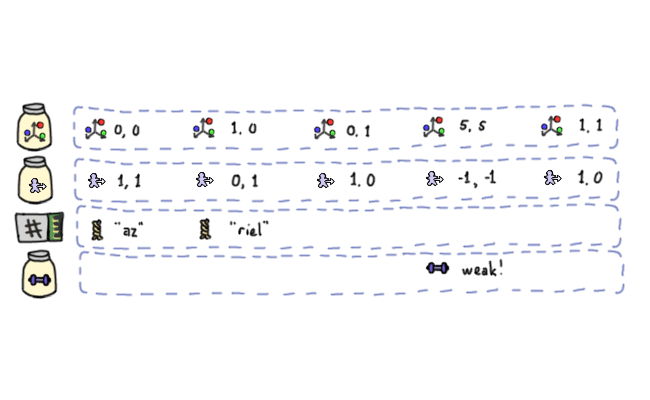 0, 0 1, 0 0, 1 5, 5 1, 1
1, 1 0, 1 1, 0 -1, -1 1, 0
# "az" "riel"
weak!